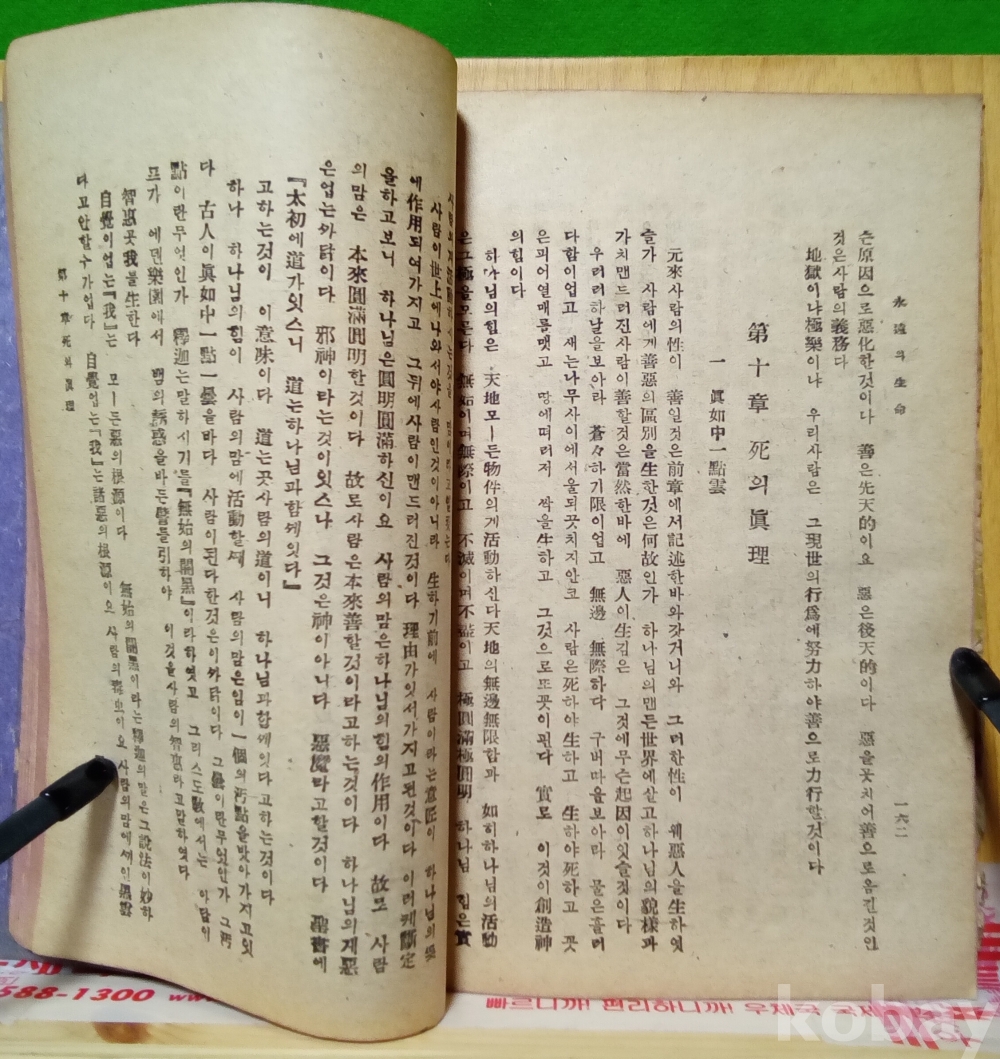 永遠의生命
一六二
는原因으로惡化한것이다 善은先天的이요 惡은後天的이다 惡을곳치어善으로옴긴것은인
것은사람의義務다
地獄이냐極樂이냐 우리사람은 그現世의行爲에努力하야善으로力行할것이다
第十章 死의眞理
一 眞如中一點雲
元來사람의性이 善일것은前章에서記述한바와갓거니와 그러한性이 웨惡人을生하엿
슬가 사람에게善惡의區別을生한것은何故인가 하나님의맨든世界에살고하나님의貌樣과
가치맨드러진사람이善할것은當然한바에 惡人이生김은 그것에무슨起因이잇슬것이다
우러러하날을보아라 蒼々하기限이업고 無邊 無際하다 구버따을보아라 물은흘러
다함이업고 새는나무사이에서울되곳치지안코 사람은死하야生하고 生하야死하고 꼿
은피어열매를맷고 땅에떠러저 싹을生하고 그것으로또꼿이핀다 實로 이것이創造神
의힘이다
하나님의힘은 天地모ー든物件의게活動하신다天地의無邊無限함과 如히하나님의活動
은그極을모른다 無始이며無際이고 不滅이며不盡이고 極圓滿極圓明 하나님 힘은實
사람이世上에나와서야사람인것이아니라 生하기前에 사람이라는意匠이 하나님의
에作用되여가지고 그뒤에사람이맨드러진것이다 理由가잇서가지고된것이다 이러케斷定
을하고보니 하나님은圓明圓滿하신이요 사람의맘은하나님의힘의作用이다 故로 사람
의맘은 本來圓滿圓明한것이다 故로사람은本來善할것이라고하는것이다 하나님의게惡
은업는까닭이다 邪神이라는것이잇스나 그것은神이아니다 惡魔라고할것이다 聖書에
『太初에道가잇스니 道는하나님과함께잇다』
고하는것이 이意味이다 道는곳사람의道이니 하나님과함께잇다고하는것이다
하나 하나님의힘이 사람의맘에活動할때 사람의맘은임이一個의汚點을밧아가지고잇
다 古人이眞如中一點一曇을바다 사람이된다한것은이까닭이다 그曇이란무엇인가 그汚
點이란무엇인가 釋迦는말하시기를『無始의闇黑』이라하엿고 그리스도敎에서는 아담이
프가 에덴樂園에서 뱀의誘惑을바든譬를引하야 이것을사람의智惠라고말하엿다
智惠곳我를生한다
自覺이업는『我』는 모ー든惡의根源이다 無始의闇黑이라는釋迦의말은그說法이妙하
다고안할수가업다 自覺업는『我』는諸惡의根源이요 사람의
第十章 死의眞理
588-1300 www.
빠르니까! 편리하니까! 우체국 국제
kobay